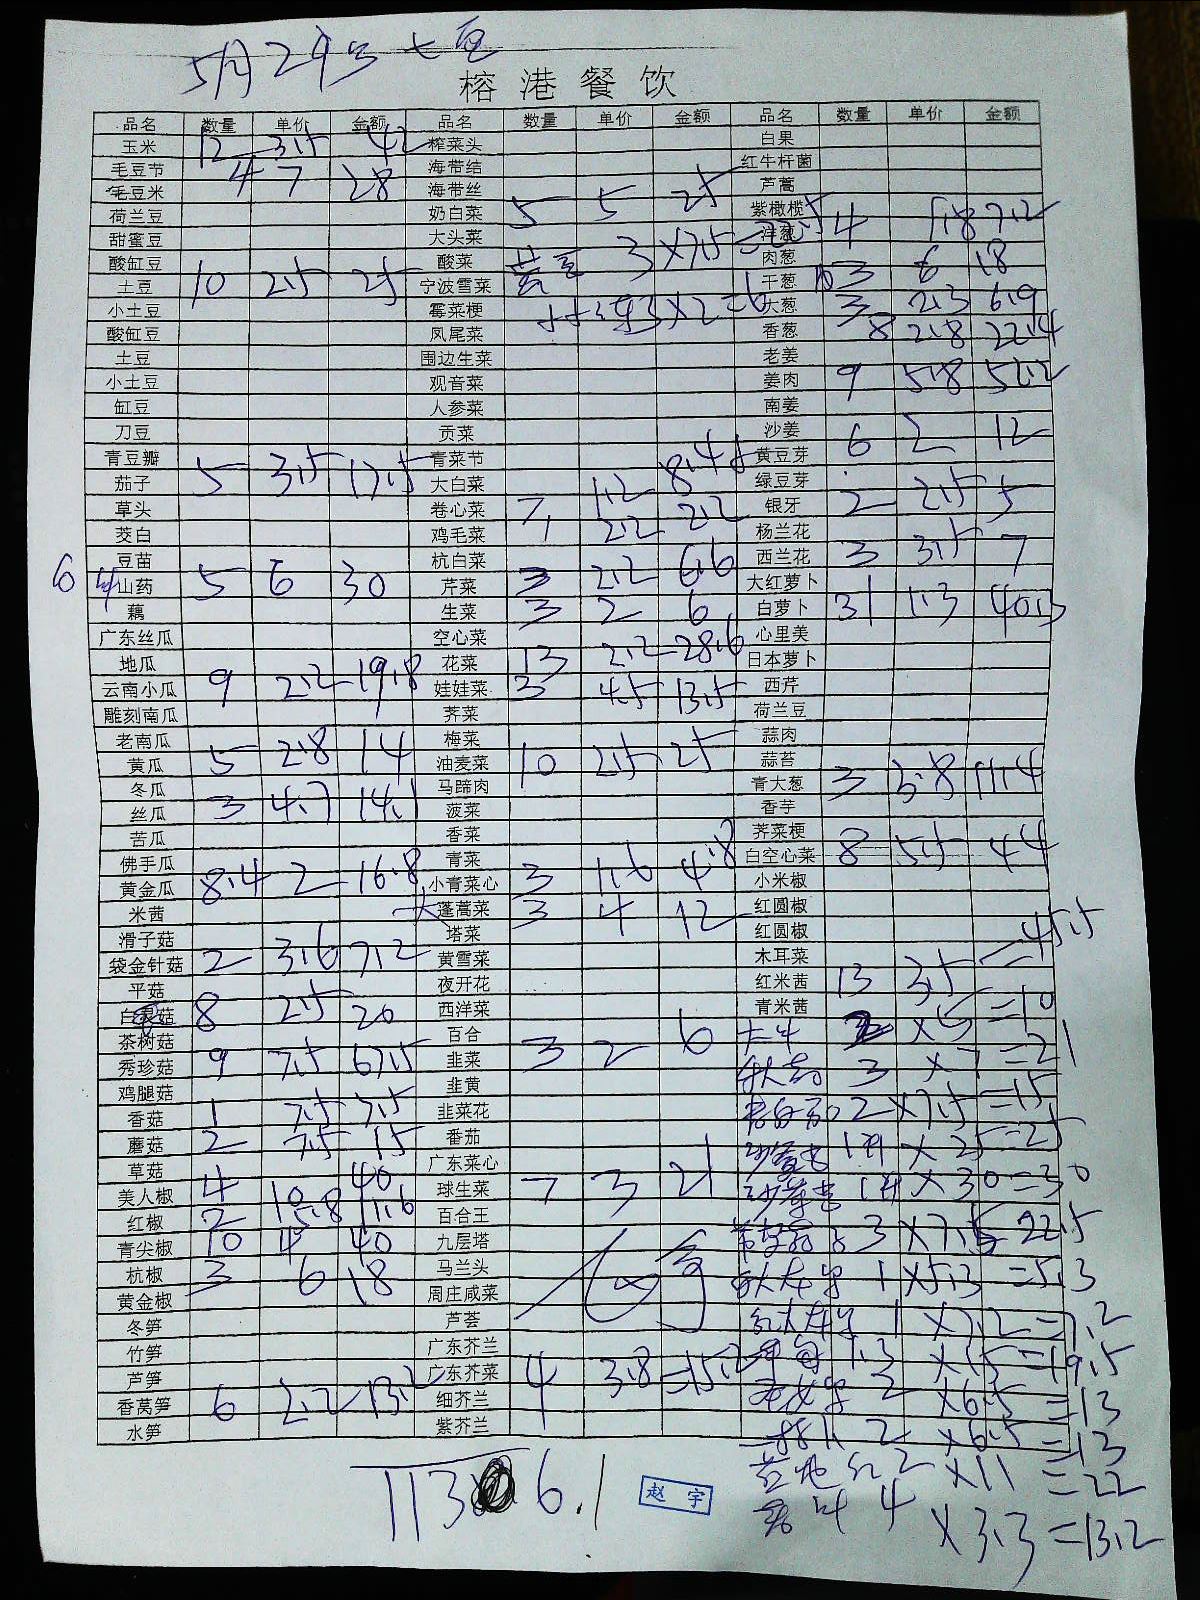 5月29号
榕港餐饮
品名 数量 单价 金额 品名 数量 单价 金额 品名 数量 单价 金额
玉米 12 3.5 42 榨菜头 白果
毛豆节 4 7 28 海带结 红牛杆菌
毛豆米 海带丝 芦蒿
荷兰豆 奶白菜 5 5 25 紫橄榄 4 1.8 7.2
甜蜜豆 大头菜 3 X7.5 =22.5 洋葱
酸缸豆 酸菜 肉葱 3 6 18
土豆 10 2.5 25 宁波雪菜 干葱
小土豆 霉菜梗 3X2=6 大葱 3 2.3 6.9
酸缸豆 凤尾菜 香葱 8 2.8 22.4
土豆 围边生菜 老姜
小土豆 观音菜 姜肉 9 5.8 52.2
缸豆 人参菜 南姜
刀豆 贡菜 沙姜 6 2 12
青豆瓣 青菜节 黄豆芽
茄子 5 3.5 17.5 大白菜 7 1.2 8.4 绿豆芽
草头 卷心菜 银牙 2 2.5 5
茭白 鸡毛菜 1 2.2 2.2 杨兰花
豆苗 杭白菜 西兰花 3 3.5 7
山药 5 6 30 芹菜 3 2.2 6.6 大红萝卜
藕 生菜 3 2 6 白萝卜 31 1.3 40.3
广东丝瓜 空心菜 心里美
地瓜 花菜 13 2.2 28.6 日本萝卜
云南小瓜 9 2.2 19.8 娃娃菜 3 4.5 13.5 西芹
雕刻南瓜 荠菜 荷兰豆
老南瓜 梅菜 蒜肉
黄瓜 5 2.8 14 油麦菜 10 2.5 25 蒜苔
冬瓜 马蹄肉 青大葱 3 3.8 11.4
丝瓜 3 4.7 14.1 菠菜 香芋
苦瓜 香菜 荠菜梗
佛手瓜 青菜 白空心菜 8 5.5 44
黄金瓜 8.4 2 16.8 小青菜心 3 1.6 4.8 小米椒
米茜 大蓬蒿菜 3 4 12 红圆椒
滑子菇 塔菜 红圆椒
袋金针菇 2 3.6 7.2 黄雪菜 木耳菜
平菇 夜开花 红米茜 13 3.5 =45.5
白菇 8 2.5 20 西洋菜 青米茜
茶树菇 百合 3 2 6 X5 =10
秀珍菇 9 7.5 67.5 韭菜 3 X7 =21
鸡腿菇 韭黄
香菇 1 7.5 7.5 韭菜花 2 X7.5 =15
蘑菇 2 7.5 15 番茄 X 25=25
草菇 广东菜心
美人椒 4 10 40 球生菜 7 3 21 X 30 =30
红椒 2 5.8 11.6 百合王
青尖椒 10 4 40 九层塔 3 X7.5 =22.5
杭椒 3 6 18 马兰头 1 X5.3 =5.3
黄金椒 周庄咸菜
冬笋 芦荟 1 X7.2 =7.2
竹笋 广东芥兰 1.3 X15 =19.5
芦笋 广东芥菜 4 3.8 =15.2
香莴笋 6 2.2 13.2 细芥兰 2 X6.5 =13
水笋 紫芥兰 2 X6.5 =13
2 X11 =22
4 X3.3 =13.2
1136.1
赵宇